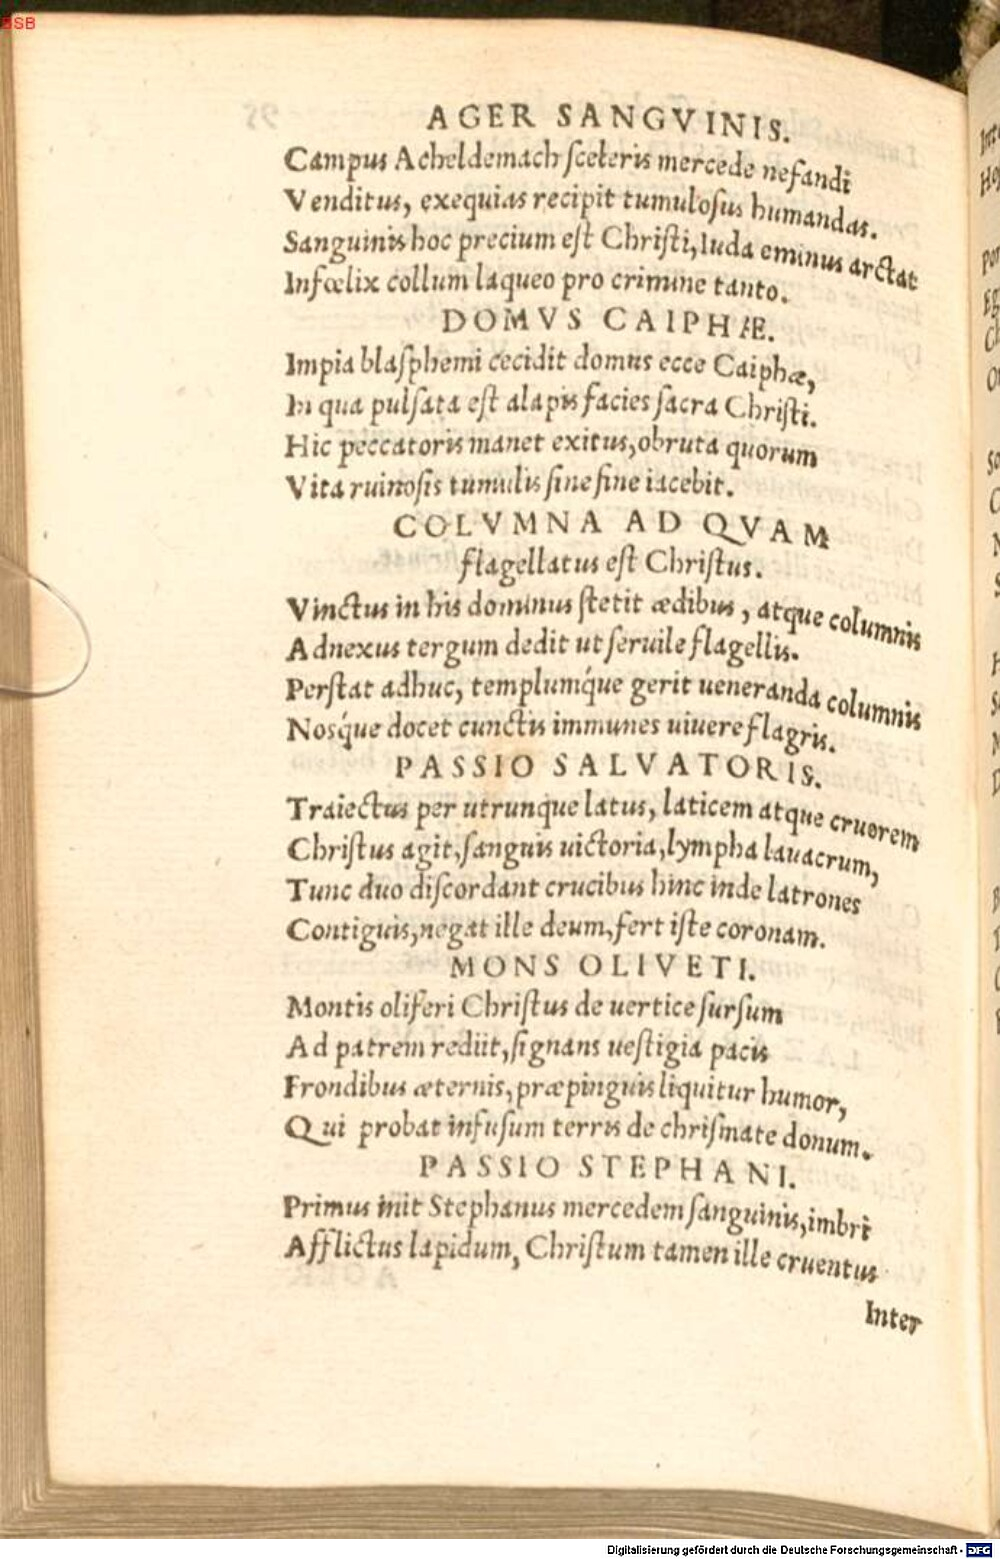 BSB
AGER SANGVINIS.
Campus Acheldemach ſceleris mercede nefandi
Venditus, exequias recipit tumulosus humandas.
Sanguinis hoc precium eſt Chriſti, Iuda eminus arctat
Infœlix collum laqueo pro crimine tanto.
DOMVS CAIPHÆ.
Impia blaſphemi cecidit domus ecce Caiphæ,
In qua pulſata eſt alapis facies ſacra Chriſti.
Hic peccatoris manet exitus, obruta quorum
Vita ruinosis tumulis ſine fine iacebit.
COLVMNA AD QVAM
flagellatus eſt Chriſtus.
Vinctus in his dominus ſtetit ædibus, atque columnis
Adnexus tergum dedit ut ſeruile flagellis.
Perſtat adhuc, templumq́ue gerit ueneranda columnis
Nosq́ue docet cunctis immunes uiuere flagris.
PASSIO SALVATORIS.
Traiectus per utrunque latus, laticem atque cruorem
Chriſtus agit, ſanguis uictoria, lympha lauacrum,
Tunc duo diſcordant crucibus hinc inde latrones
Contiguis, negat ille deum, fert iſte coronam.
MONS OLIVETI.
Montis oliferi Chriſtus de uertice ſurſum
Ad patrem rediit, ſignans ueſtigia pacis
Frondibus æternis, præpinguis liquitur humor,
Qui probat infuſum terris de chriſmate donum.
PASSIO STEPHANI.
Primus init Stephanus mercedem ſanguinis, imbri
Afflictus lapidum, Chriſtum tamen ille cruentus
Inter
Digitalisierung gefördert durch die Deutsche Forschungsgemeinschaft - DFG